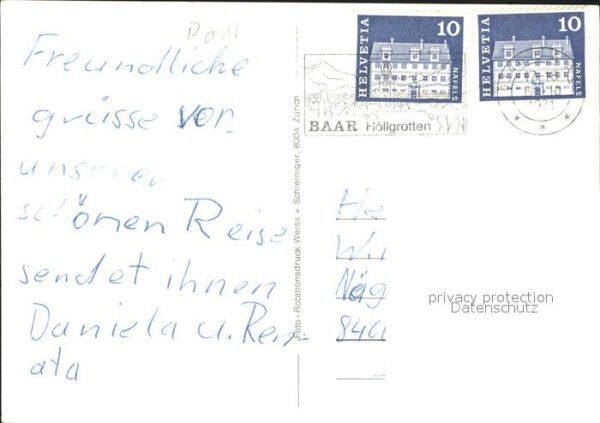 Paul
Freundliche
grüsse von
unserer
schönen Reise
sendet ihnen
Daniela u. Ren-
ata
HELVETIA 10 NÄFELS
HELVETIA 10 NÄFELS
BAAR Höllgrotten
Foto - Rotationsdruck Weiss + Schleiniger, 8004 Zürich
He
Wi
Näg
840
privacy protection
Datenschutz